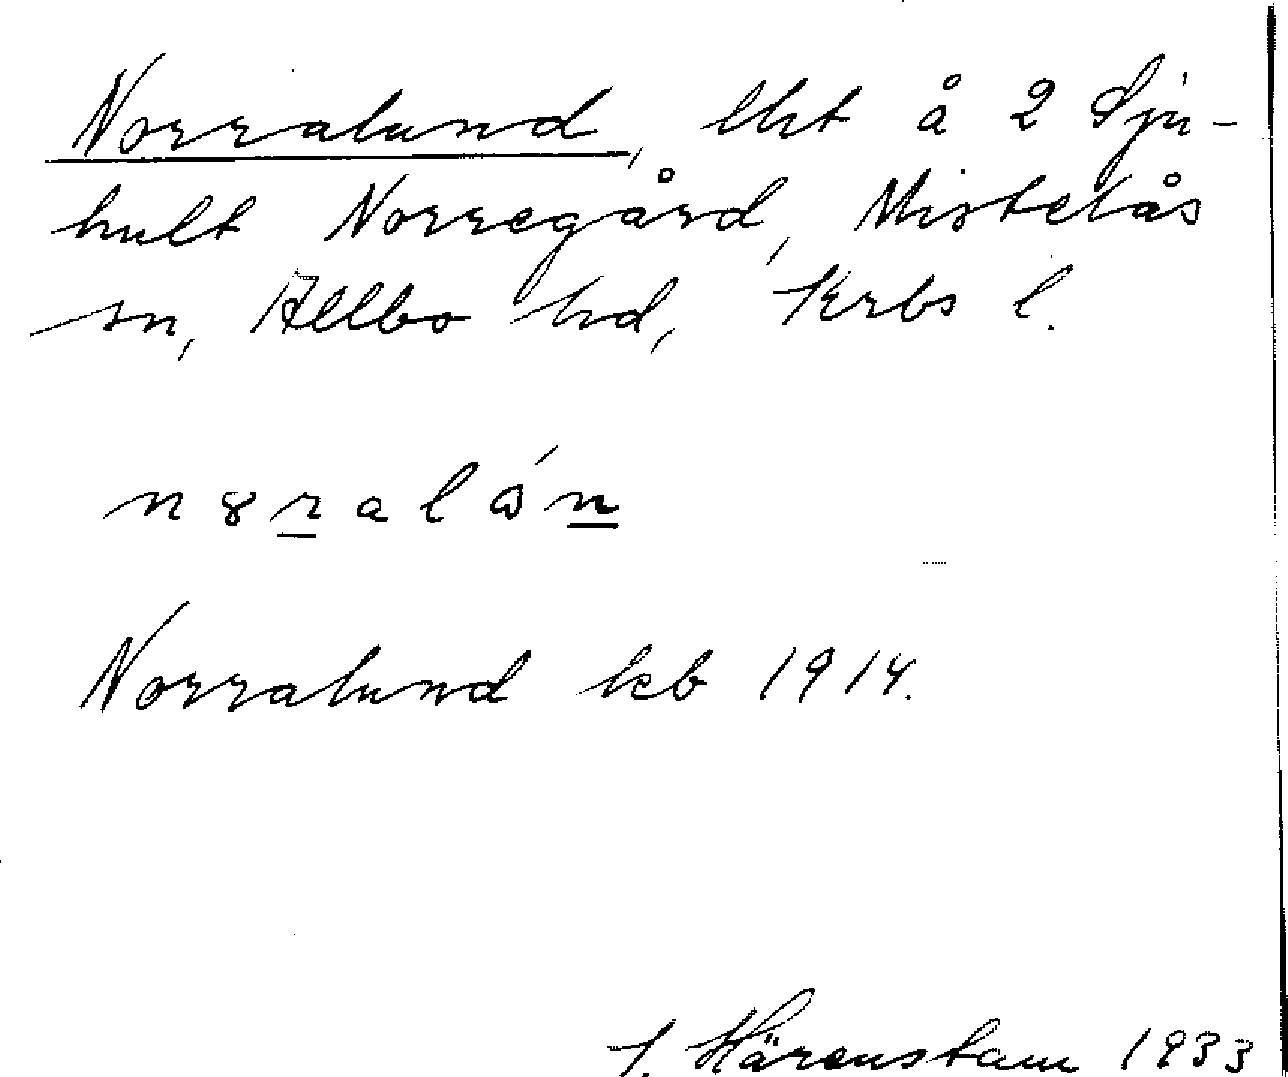 Norralund, lht å 2 Sju-
hult Norregård, Mistelås
sn, Allbo hd, Krbs l.
n8ralán
Norralund kb 1914.
Härenstam 1933